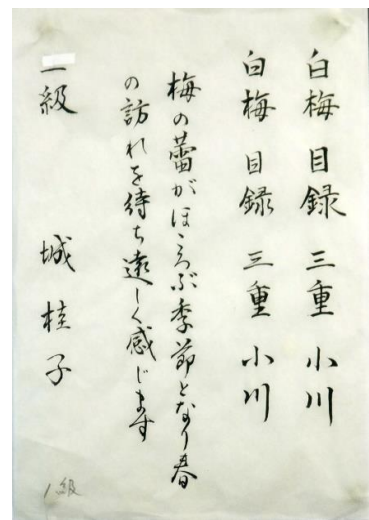 白梅 目録 三重 小川
白梅 目録 三重 小川
梅の蕾がほころぶ季節となり春
の訪れを待ち遠しく感じます
一級 城 桂子
1級